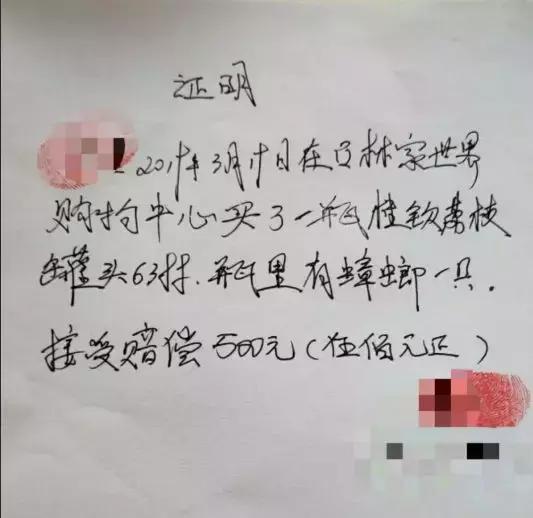 证明
2019年3月19日在吉林家世界
购物中心买了一瓶桂钦荔枝
罐头63牌.瓶里有蟑螂一只.
接受赔偿500元(伍佰元正)